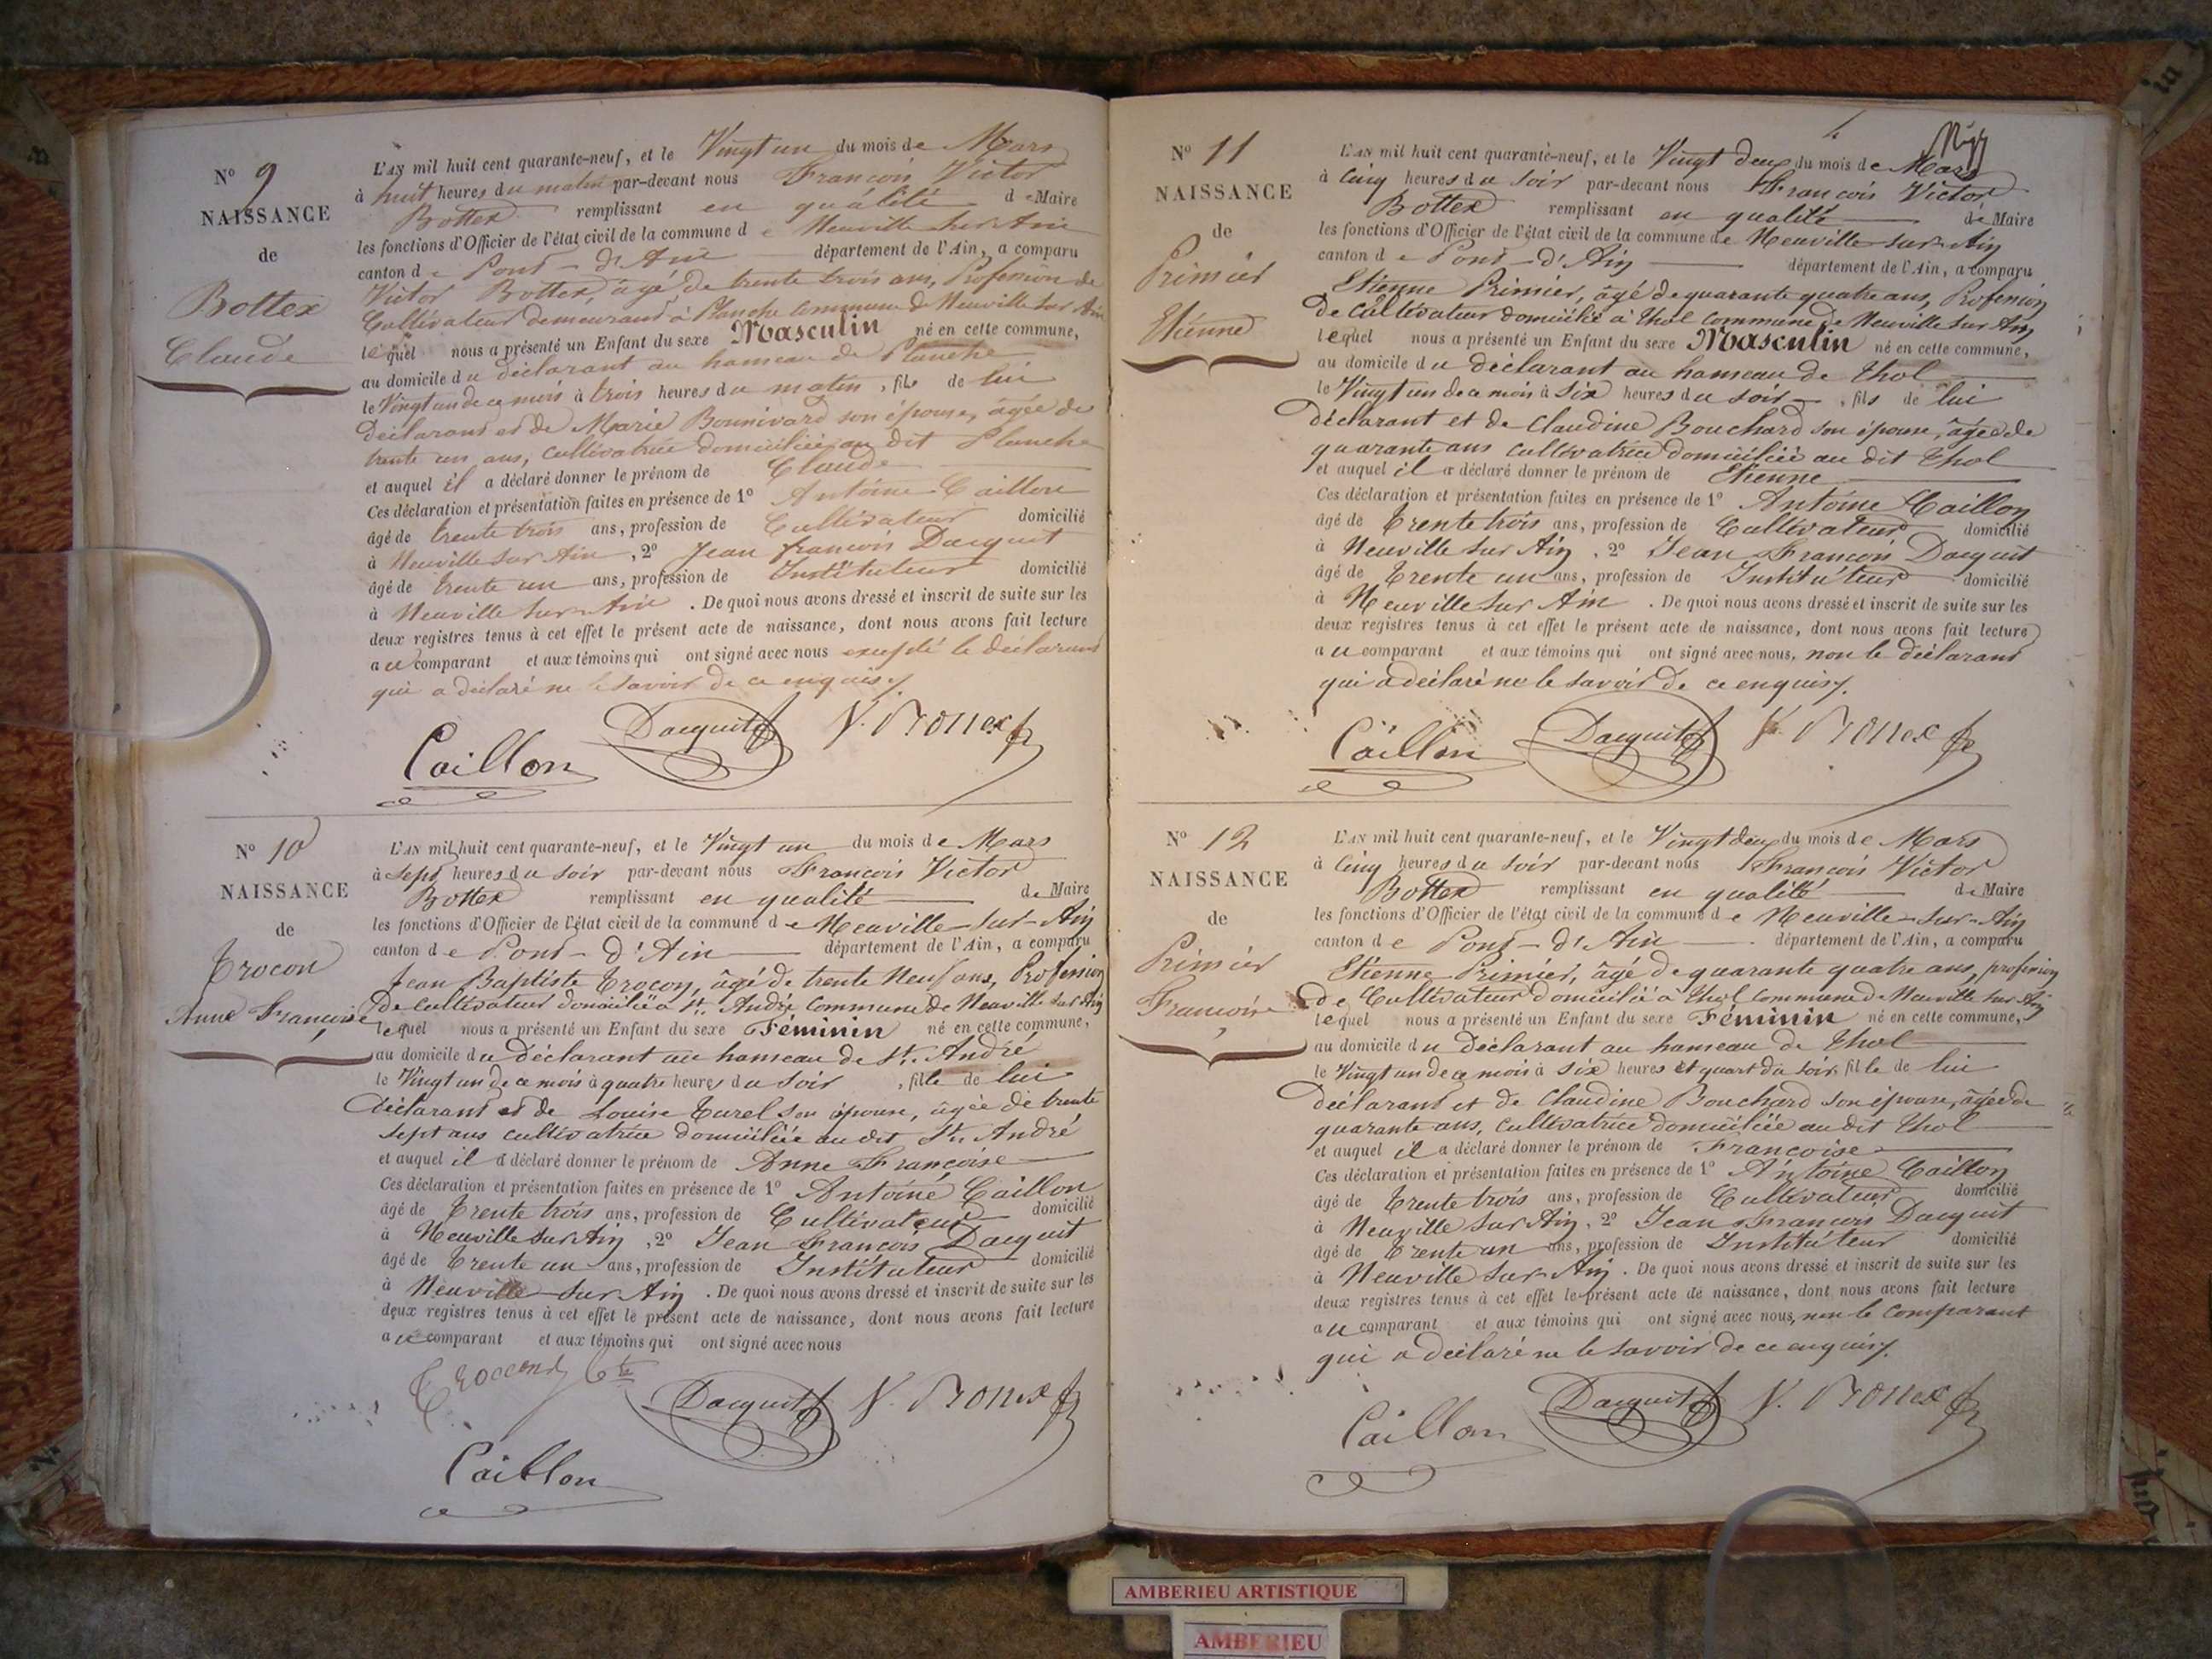 N° 9
NAISSANCE
de
Bottex
Claude
L'AN mil huit cent quarante-neuf, et le Vingt un du mois de Mars
à huit heures du matin par-devant nous François Victor
Bottex remplissant en qualité de Maire
les fonctions d'Officier de l'état civil de la commune de Neuville sur Ain
canton de Pont-d'Ain département de l'Ain, a comparu
Victor Bottex, âgé de trente trois ans, Profession de
Cultivateur demeurant à Planche commune de Neuville sur Ain
lequel nous a présenté un Enfant du sexe Masculin né en cette commune,
au domicile du déclarant au hameau de Planche
le Vingt un de ce mois à trois heures du matin, fils de lui
Déclarant et de Marie Bonnivard son épouse, âgée de
trente un ans, cultivatrice domiciliée au dit Planche
et auquel il a déclaré donner le prénom de Claude
Ces déclaration et présentation faites en présence de 1° Antoine Caillon
âgé de trente trois ans, profession de Cultivateur domicilié
à Neuville sur Ain, 2° Jean françois Dacquit
âgé de trente un ans, profession de Instituteur domicilié
à Neuville sur Ain. De quoi nous avons dressé et inscrit de suite sur les
deux registres tenus à cet effet le présent acte de naissance, dont nous avons fait lecture
au comparant et aux témoins qui ont signé avec nous excepté le déclarant
qui a déclaré ne le savoir de ce enquis.
Caillon Dacquit V. Bottex
N° 10
NAISSANCE
de
Trocon
Anne Françoise
L'AN mil huit cent quarante-neuf, et le Vingt un du mois de Mars
à sept heures du soir par-devant nous François Victor
Bottex remplissant en qualité de Maire
les fonctions d'Officier de l'état civil de la commune de Neuville-sur-Ain
canton de Pont-d'Ain département de l'Ain, a comparu
Jean Baptiste Trocon, âgé de trente neuf ans, Profession
de cultivateur domicilié à St. André commune de Neuville sur Ain
lequel nous a présenté un Enfant du sexe Féminin né en cette commune,
au domicile du déclarant au hameau de St. André
le Vingt un de ce mois à quatre heures du soir, fille de lui
Déclarant et de Louise Turel son épouse, âgée de trente
sept ans cultivatrice domiciliée au dit St. André
et auquel il a déclaré donner le prénom de Anne Françoise
Ces déclaration et présentation faites en présence de 1° Antoine Caillon
âgé de Trente trois ans, profession de Cultivateur domicilié
à Neuville sur Ain, 2° Jean François Dacquit
âgé de Trente un ans, profession de Instituteur domicilié
à Neuville sur Ain. De quoi nous avons dressé et inscrit de suite sur les
deux registres tenus à cet effet le présent acte de naissance, dont nous avons fait lecture
au comparant et aux témoins qui ont signé avec nous
Dacquit V. Bottex
Caillon
N° 11
NAISSANCE
de
Primier
Etienne
L'AN mil huit cent quarante-neuf, et le Vingt deux du mois de Mars
à cinq heures du soir par-devant nous François Victor
Bottex remplissant en qualité de Maire
les fonctions d'Officier de l'état civil de la commune de Neuville-sur-Ain
canton de Pont-d'Ain département de l'Ain, a comparu
Etienne Primier, âgé de quarante quatre ans, Profession
de Cultivateur domicilié à Thol commune de Neuville sur Ain
lequel nous a présenté un Enfant du sexe Masculin né en cette commune,
au domicile du déclarant au hameau de Thol
le Vingt un de ce mois à six heures du soir, fils de lui
déclarant et de Claudine Bouchard son épouse, âgée de
quarante ans cultivatrice domiciliée au dit Thol
et auquel il a déclaré donner le prénom de Etienne
Ces déclaration et présentation faites en présence de 1° Antoine Caillon
âgé de Trente trois ans, profession de Cultivateur domicilié
à Neuville sur Ain, 2° Jean François Dacquit
âgé de Trente un ans, profession de Instituteur domicilié
à Neuville sur Ain. De quoi nous avons dressé et inscrit de suite sur les
deux registres tenus à cet effet le présent acte de naissance, dont nous avons fait lecture
au comparant et aux témoins qui ont signé avec nous, non le déclarant
qui a déclaré ne le savoir de ce enquis.
Caillon Dacquit V. Bottex
N° 12
NAISSANCE
de
Primier
Françoise
L'AN mil huit cent quarante-neuf, et le Vingt deux du mois de Mars
à cinq heures du soir par-devant nous François Victor
Bottex remplissant en qualité de Maire
les fonctions d'Officier de l'état civil de la commune de Neuville-sur-Ain
canton de Pont-d'Ain département de l'Ain, a comparu
Etienne Primier, âgé de quarante quatre ans, profession
de Cultivateur domicilié à Thol commune de Neuville sur Ain
lequel nous a présenté un Enfant du sexe Féminin né en cette commune,
au domicile du déclarant au hameau de Thol
le Vingt un de ce mois à six heures et quart du soir, fille de lui
déclarant et de Claudine Bouchard son épouse, âgée de
quarante ans, cultivatrice domiciliée au dit Thol
et auquel il a déclaré donner le prénom de Françoise
Ces déclaration et présentation faites en présence de 1° Antoine Caillon
âgé de Trente trois ans, profession de Cultivateur domicilié
à Neuville sur Ain, 2° Jean François Dacquit
âgé de Trente un ans, profession de Instituteur domicilié
à Neuville sur Ain. De quoi nous avons dressé et inscrit de suite sur les
deux registres tenus à cet effet le présent acte de naissance, dont nous avons fait lecture
au comparant et aux témoins qui ont signé avec nous, non le comparant
qui a déclaré ne le savoir de ce enquis.
Caillon Dacquit V. Bottex
AMBERIEU ARTISTIQUE
AMBERIEU